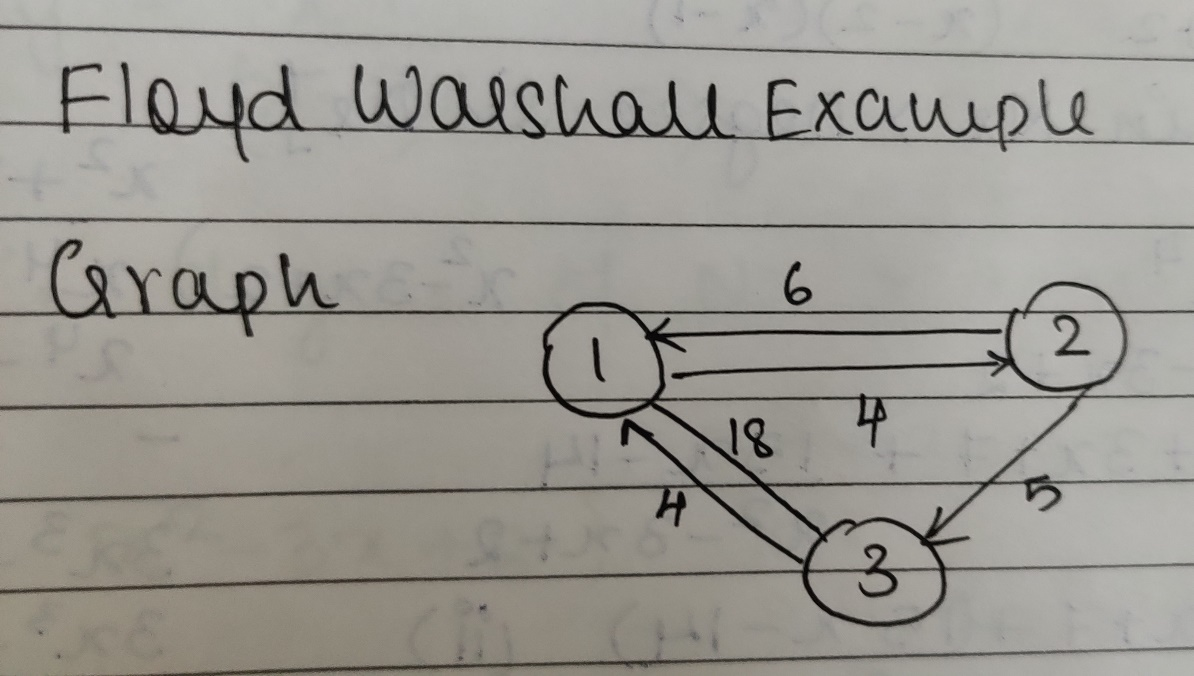 Floyd Warshall Example
Graph
6
1
2
4
18
4
5
3